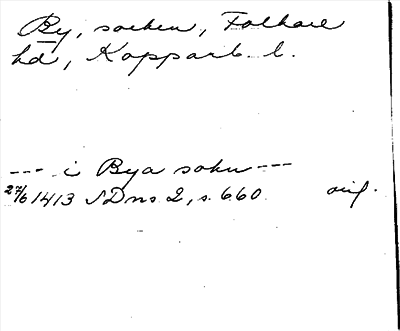 By, socken, Folkare
hd, Kopparb. l.
--- i Bya sokn ---
27/6 1413 SDns 2, s. 660. orig.